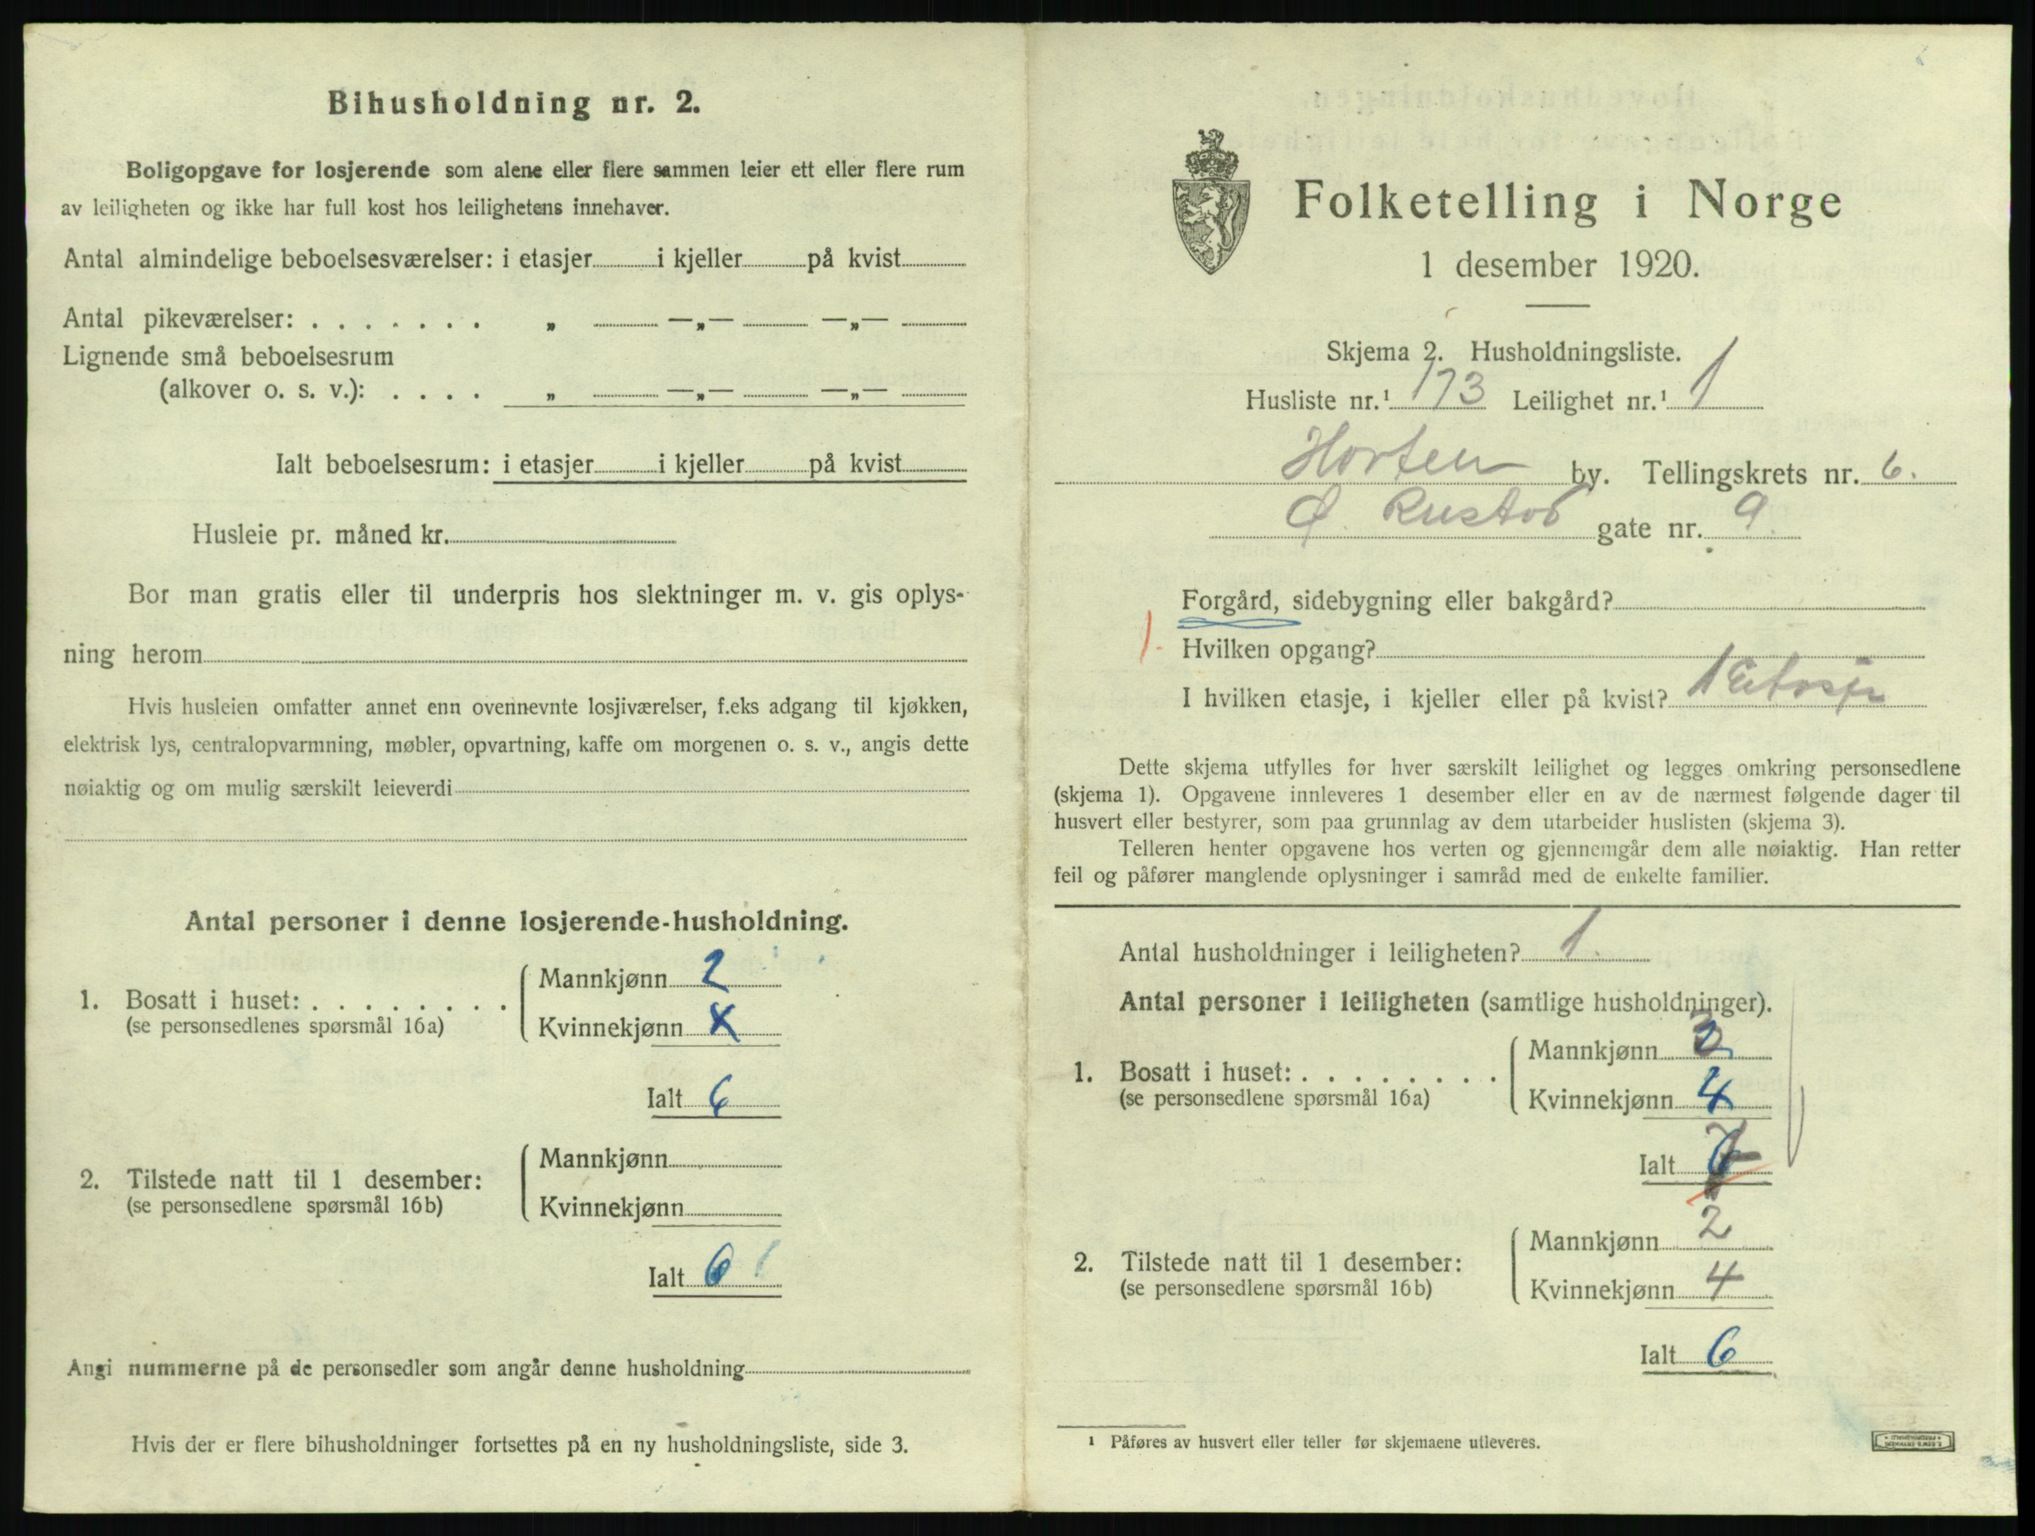 Bihusholdning nr. 2.
Boligopgave for losjerende som alene eller flere sammen leier ett eller flere rum
av leiligheten og ikke har full kost hos leilighetens innehaver.
Antal almindelige beboelsesværelser: i etasjer i kjeller på kvist
Antal pikeværelser: . . . . . . . „ —„— —„—
Lignende små beboelsesrum
(alkover o. s. v.): . . . . „ —„— —„—
Ialt beboelsesrum: i etasjer i kjeller på kvist
Husleie pr. måned kr.
Bor man gratis eller til underpris hos slektninger m. v. gis oplys-
ning herom
Hvis husleien omfatter annet enn ovennevnte losjiværelser, f.eks adgang til kjøkken,
elektrisk lys, centralopvarmning, møbler, opvartning, kaffe om morgenen o. s. v., angis dette
nøiaktig og om mulig særskilt leieverdi
Antal personer i denne losjerende-husholdning.
Mannkjønn 2
1. Bosatt i huset: . . . . . . . .
(se personsedlenes spørsmål 16a)
Kvinnekjønn
Ialt 6
Mannkjønn
2. Tilstede natt til 1 desember:
(se personsedlene spørsmål 16b)
Kvinnekjønn
Ialt 6
Angi nummerne på de personsedler som angår denne husholdning
Hvis der er flere bihusholdninger fortsettes på en ny husholdningsliste, side 3.
Folketelling i Norge
1 desember 1920.
Skjema 2. Husholdningsliste.
Husliste nr.¹ 173 Leilighet nr.¹ 1
Horten by. Tellingskrets nr. 6.
Ø. Rustad gate nr. 9.
Forgård, sidebygning eller bakgård?
1. Hvilken opgang?
I hvilken etasje, i kjeller eller på kvist? 1 Etasje
Dette skjema utfylles for hver særskilt leilighet og legges omkring personsedlene
(skjema 1). Opgavene innleveres 1 desember eller en av de nærmest følgende dager til
husvert eller bestyrer, som paa grunnlag av dem utarbeider huslisten (skjema 3).
Telleren henter opgavene hos verten og gjennemgår dem alle nøiaktig. Han retter
feil og påfører manglende oplysninger i samråd med de enkelte familier.
Antal husholdninger i leiligheten? 1.
Antal personer i leiligheten (samtlige husholdninger).
Mannkjønn 2
1. Bosatt i huset: . . . . . . . .
(se personsedlene spørsmål 16a)
Kvinnekjønn 4
Ialt 6
Mannkjønn 2
2. Tilstede natt til 1 desember:
(se personsedlene spørsmål 16b)
Kvinnekjønn 4
Ialt 6
¹ Påføres av husvert eller teller før skjemaene utleveres.